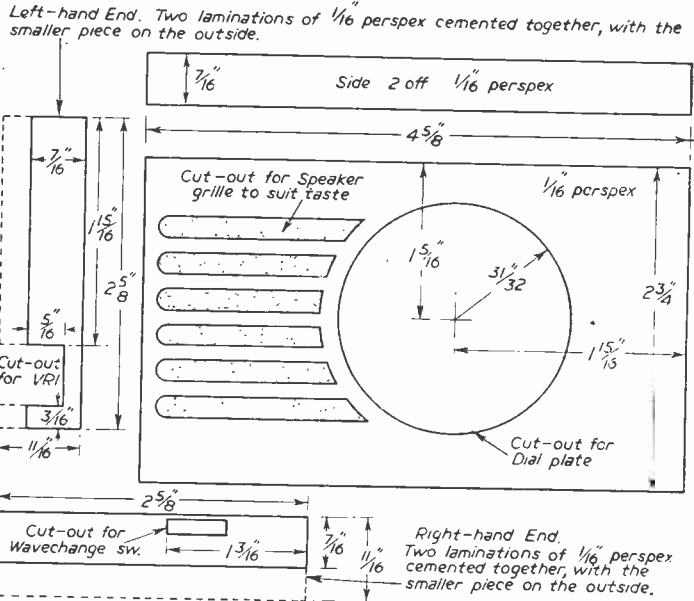 Left-hand End. Two laminations of 1/16" perspex cemented together, with the
smaller piece on the outside.
7/16"
Side 2 off 1/16" perspex
4 5/8"
7/16"
1 15/16"
2 5/8"
5/16"
Cut-out
for VR1
3/16"
11/16"
Cut-out for Speaker
grille to suit taste
1/16" perspex
1 5/16"
31/32"
2 3/4"
1 15/16"
Cut-out for
Dial plate
2 5/8"
Cut-out for
Wavechange sw.
1 3/16"
7/16"
11/16"
Right-hand End.
Two laminations of 1/16" perspex
cemented together, with the
smaller piece on the outside.